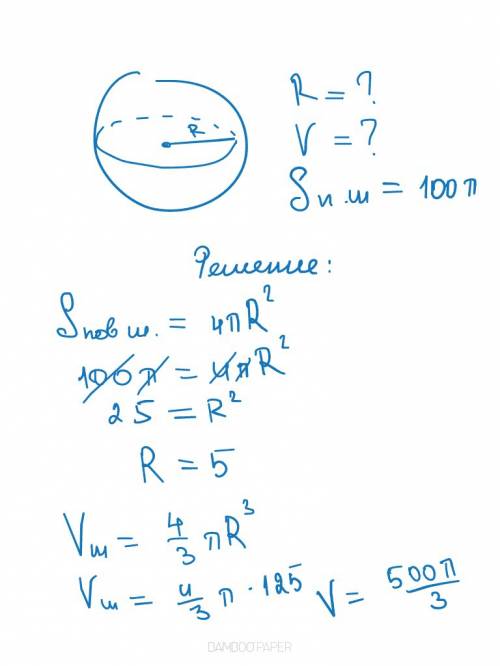 R
R = ?
V = ?
Sп.ш = 100π
Решение:
Sпов ш. = 4πR²
100π = 4πR²
25 = R²
R = 5
Vш = 4/3 πR³
Vш = 4/3 π · 125 V = 500π/3
BAMBOOPAPER